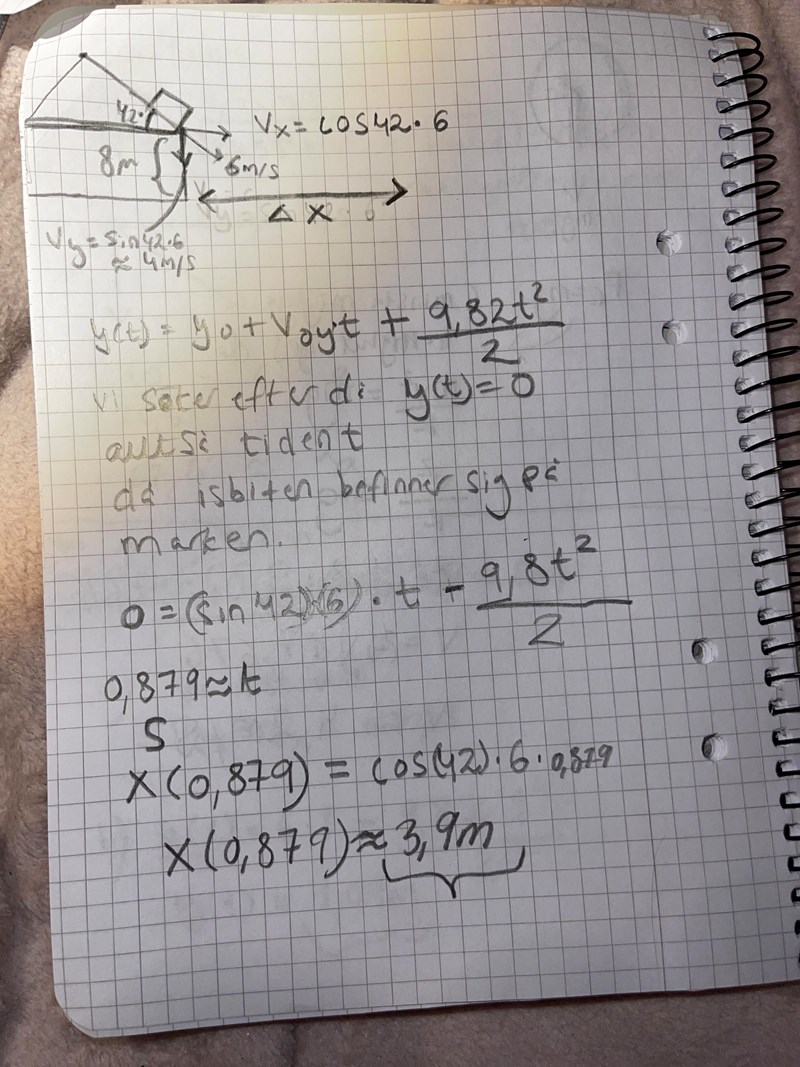 42°
Vx = cos42 · 6
8m
6m/s
Δ x
Vy = sin42·6
≈ 4m/s
y(t) = y0 + V0yt + 9,82t²/2
vi söker efter då y(t) = 0
alltså tiden t
då isbiten befinner sig på
marken.
0 = (sin 42)(6) · t - 9,8t²/2
0,879 ≈ t
s
x(0,879) = cos(42) · 6 · 0,879
x(0,879) ≈ 3,9m